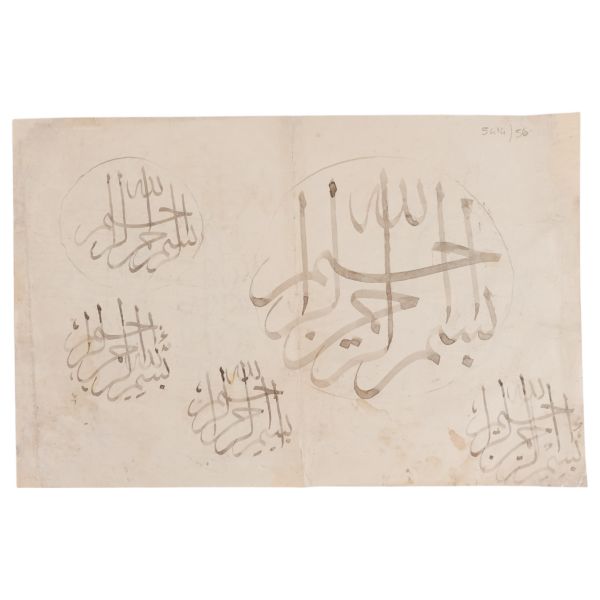 5414/56
بسم الله الرحمن الرحيم
بسم الله الرحمن الرحيم
بسم الله الرحمن الرحيم
بسم الله الرحمن الرحيم
بسم الله الرحمن الرحيم